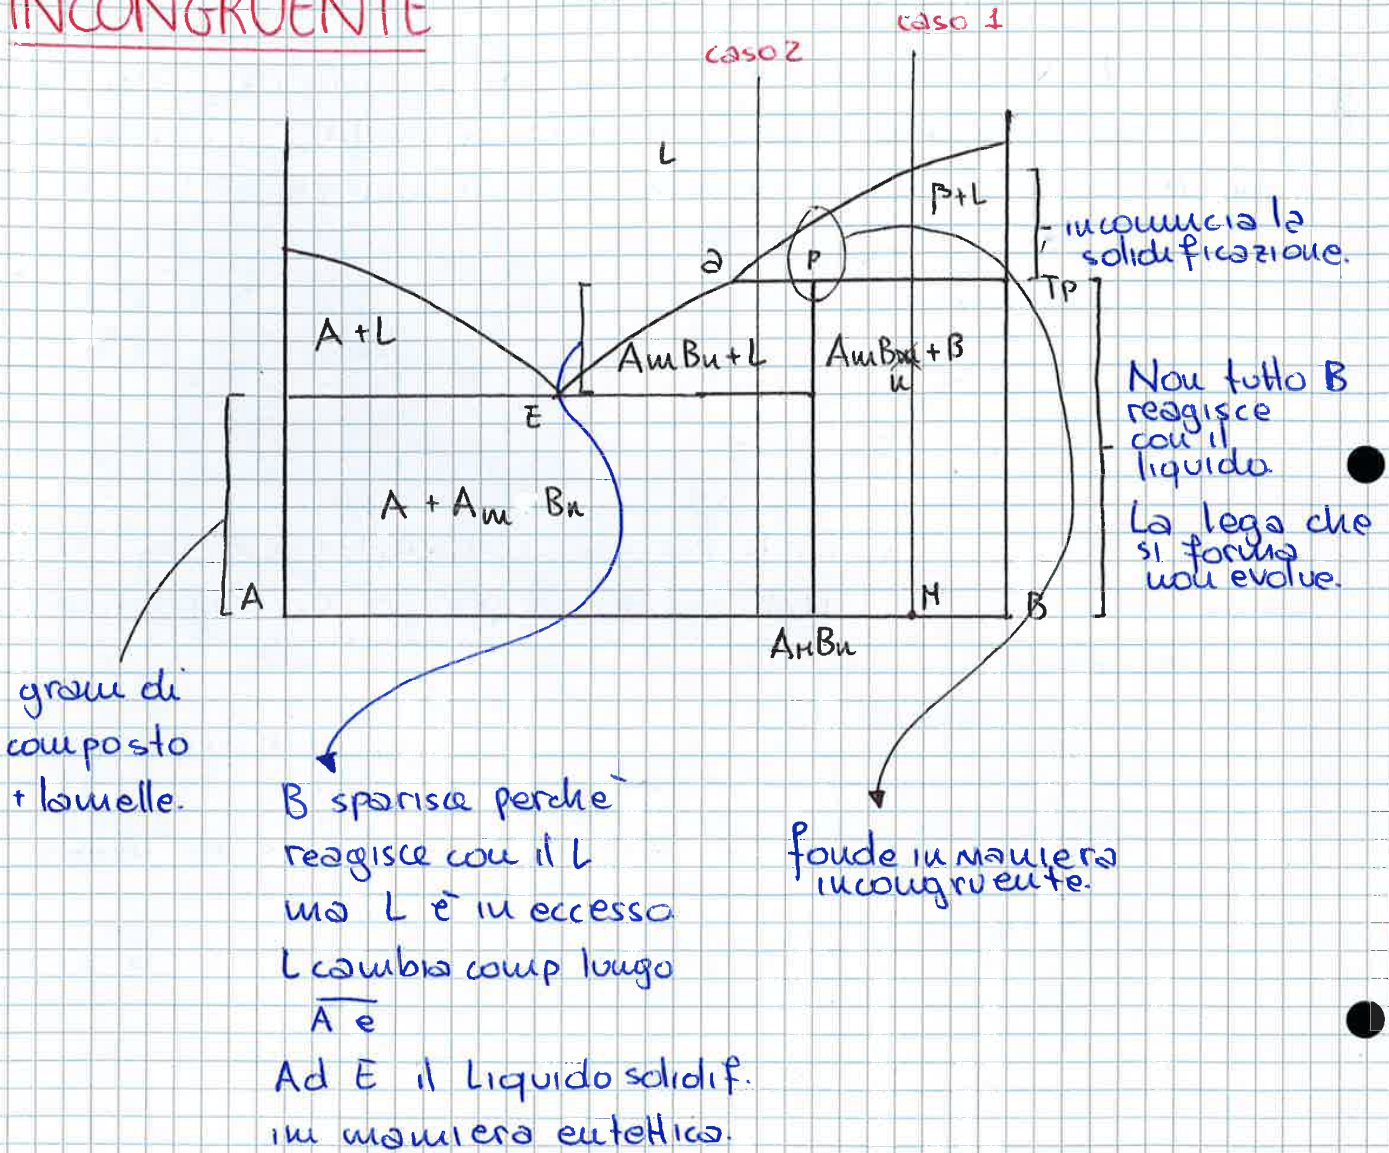 INCONGRUENTE
caso 1
caso 2
L
β+L
incomincia la
solidificazione.
a
P
TP
A + L
AmBn + L
AmBn + B
Non tutto B
reagisce
con il
liquido.
La lega che
si forma
non evolve.
E
A + Am Bn
A
M
B
AMBn
grani di
composto
+ lamelle.
B sparisce perchè
reagisce con il L
ma L è in eccesso
L cambia comp lungo
A e
Ad E il Liquido solidif.
in maniera eutettica.
fonde in maniera
incongruente.